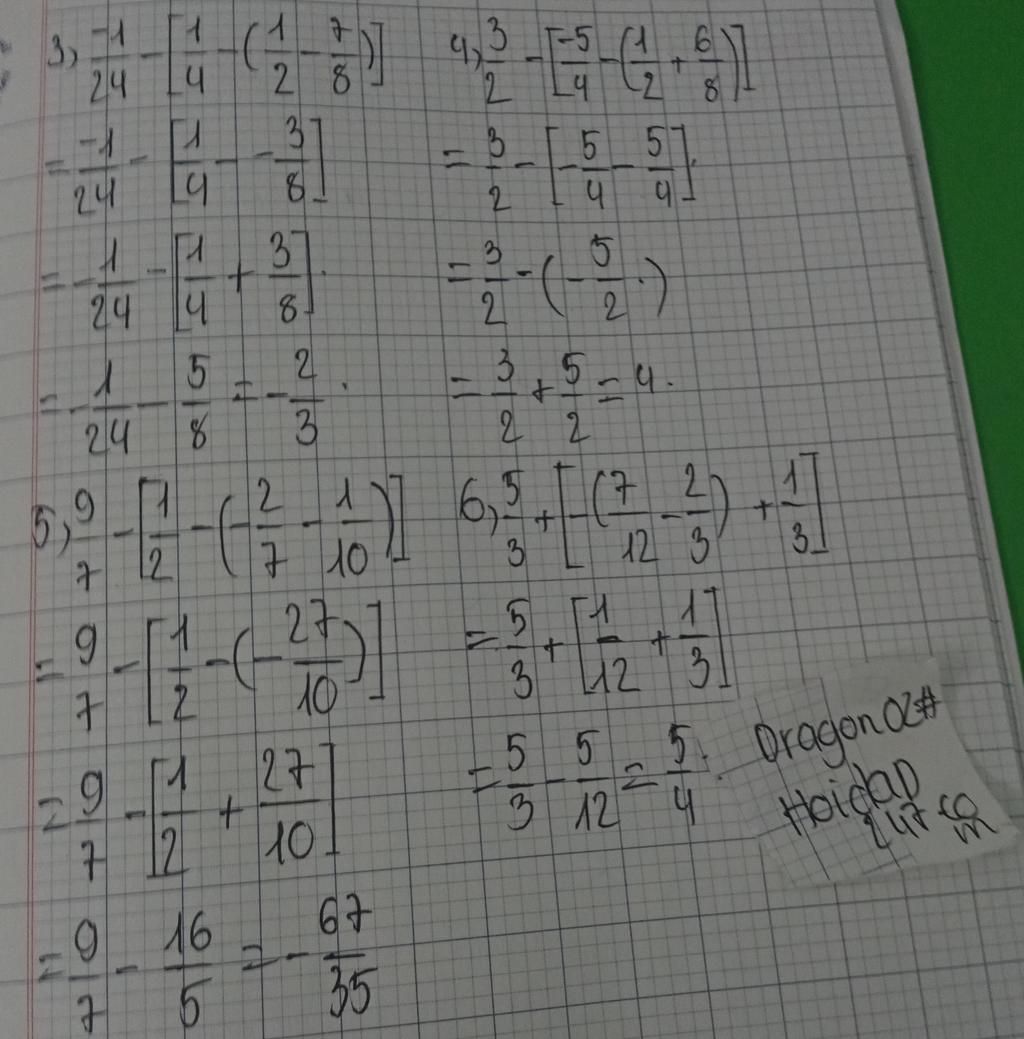 3, -1/24 - [1/4 - (1/2 - 7/8)]
= -1/24 - [1/4 - - 3/8]
= - 1/24 - [1/4 + 3/8].
= - 1/24 - 5/8 = - 2/3.
4, 3/2 - [-5/4 - (1/2 + 6/8)]
= 3/2 - [- 5/4 - 5/4].
= 3/2 - (- 5/2.)
= 3/2 + 5/2 = 4.
5, 9/7 - [1/2 - (- 2/7 - 1/10)]
= 9/7 - [1/2 - (- 27/10)]
= 9/7 - [1/2 + 27/10]
= 9/7 - 16/5 = - 67/35
6, 5/3 + [- (7/12 - 2/3) + 1/3]
= 5/3 + [1/12 + 1/3]
= 5/3 - 5/12 = 5/4.
Dragon02#
Hoidap
247 co
m